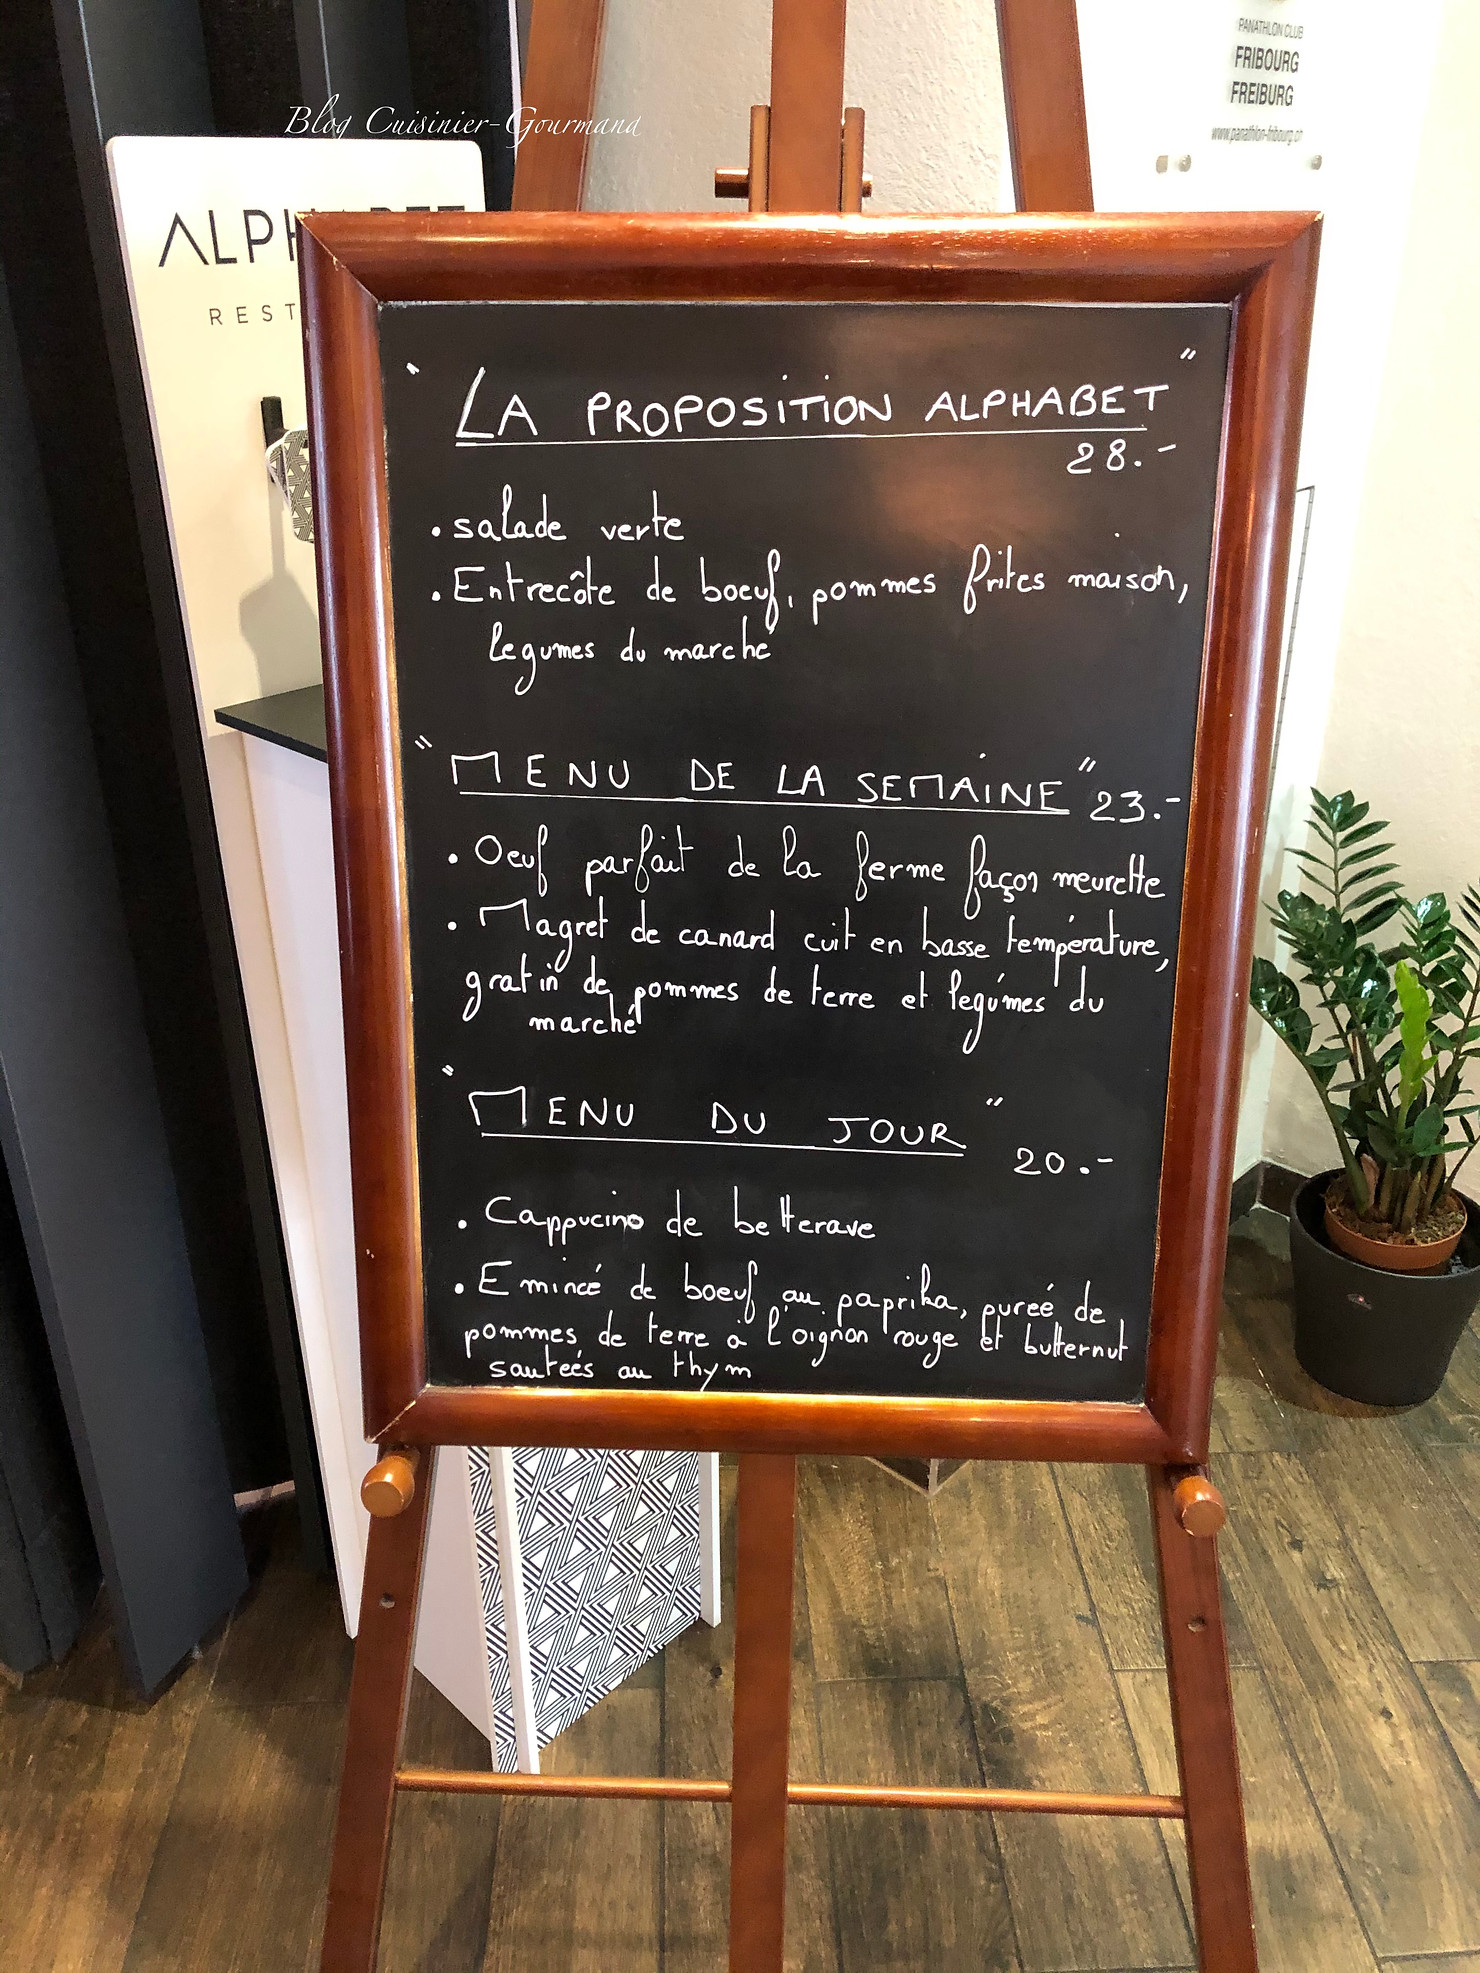 Blog Cuisinier-Gourmand
PANATHLON CLUB
FRIBOURG
FREIBURG
www.panathlon-fribourg.ch
ALPHABET
REST
"LA PROPOSITION ALPHABET"
28.-
• salade verte
• Entrecôte de boeuf, pommes frites maison,
légumes du marché
"MENU DE LA SEMAINE" 23.-
• Oeuf parfait de la ferme façon meurette
• Magret de canard cuit en basse température,
gratin de pommes de terre et légumes du
marché
"MENU DU JOUR"
20.-
• Cappucino de betterave
• Emincé de boeuf au paprika, pureé de
pommes de terre à l'oignon rouge et butternut
sauteés au thym